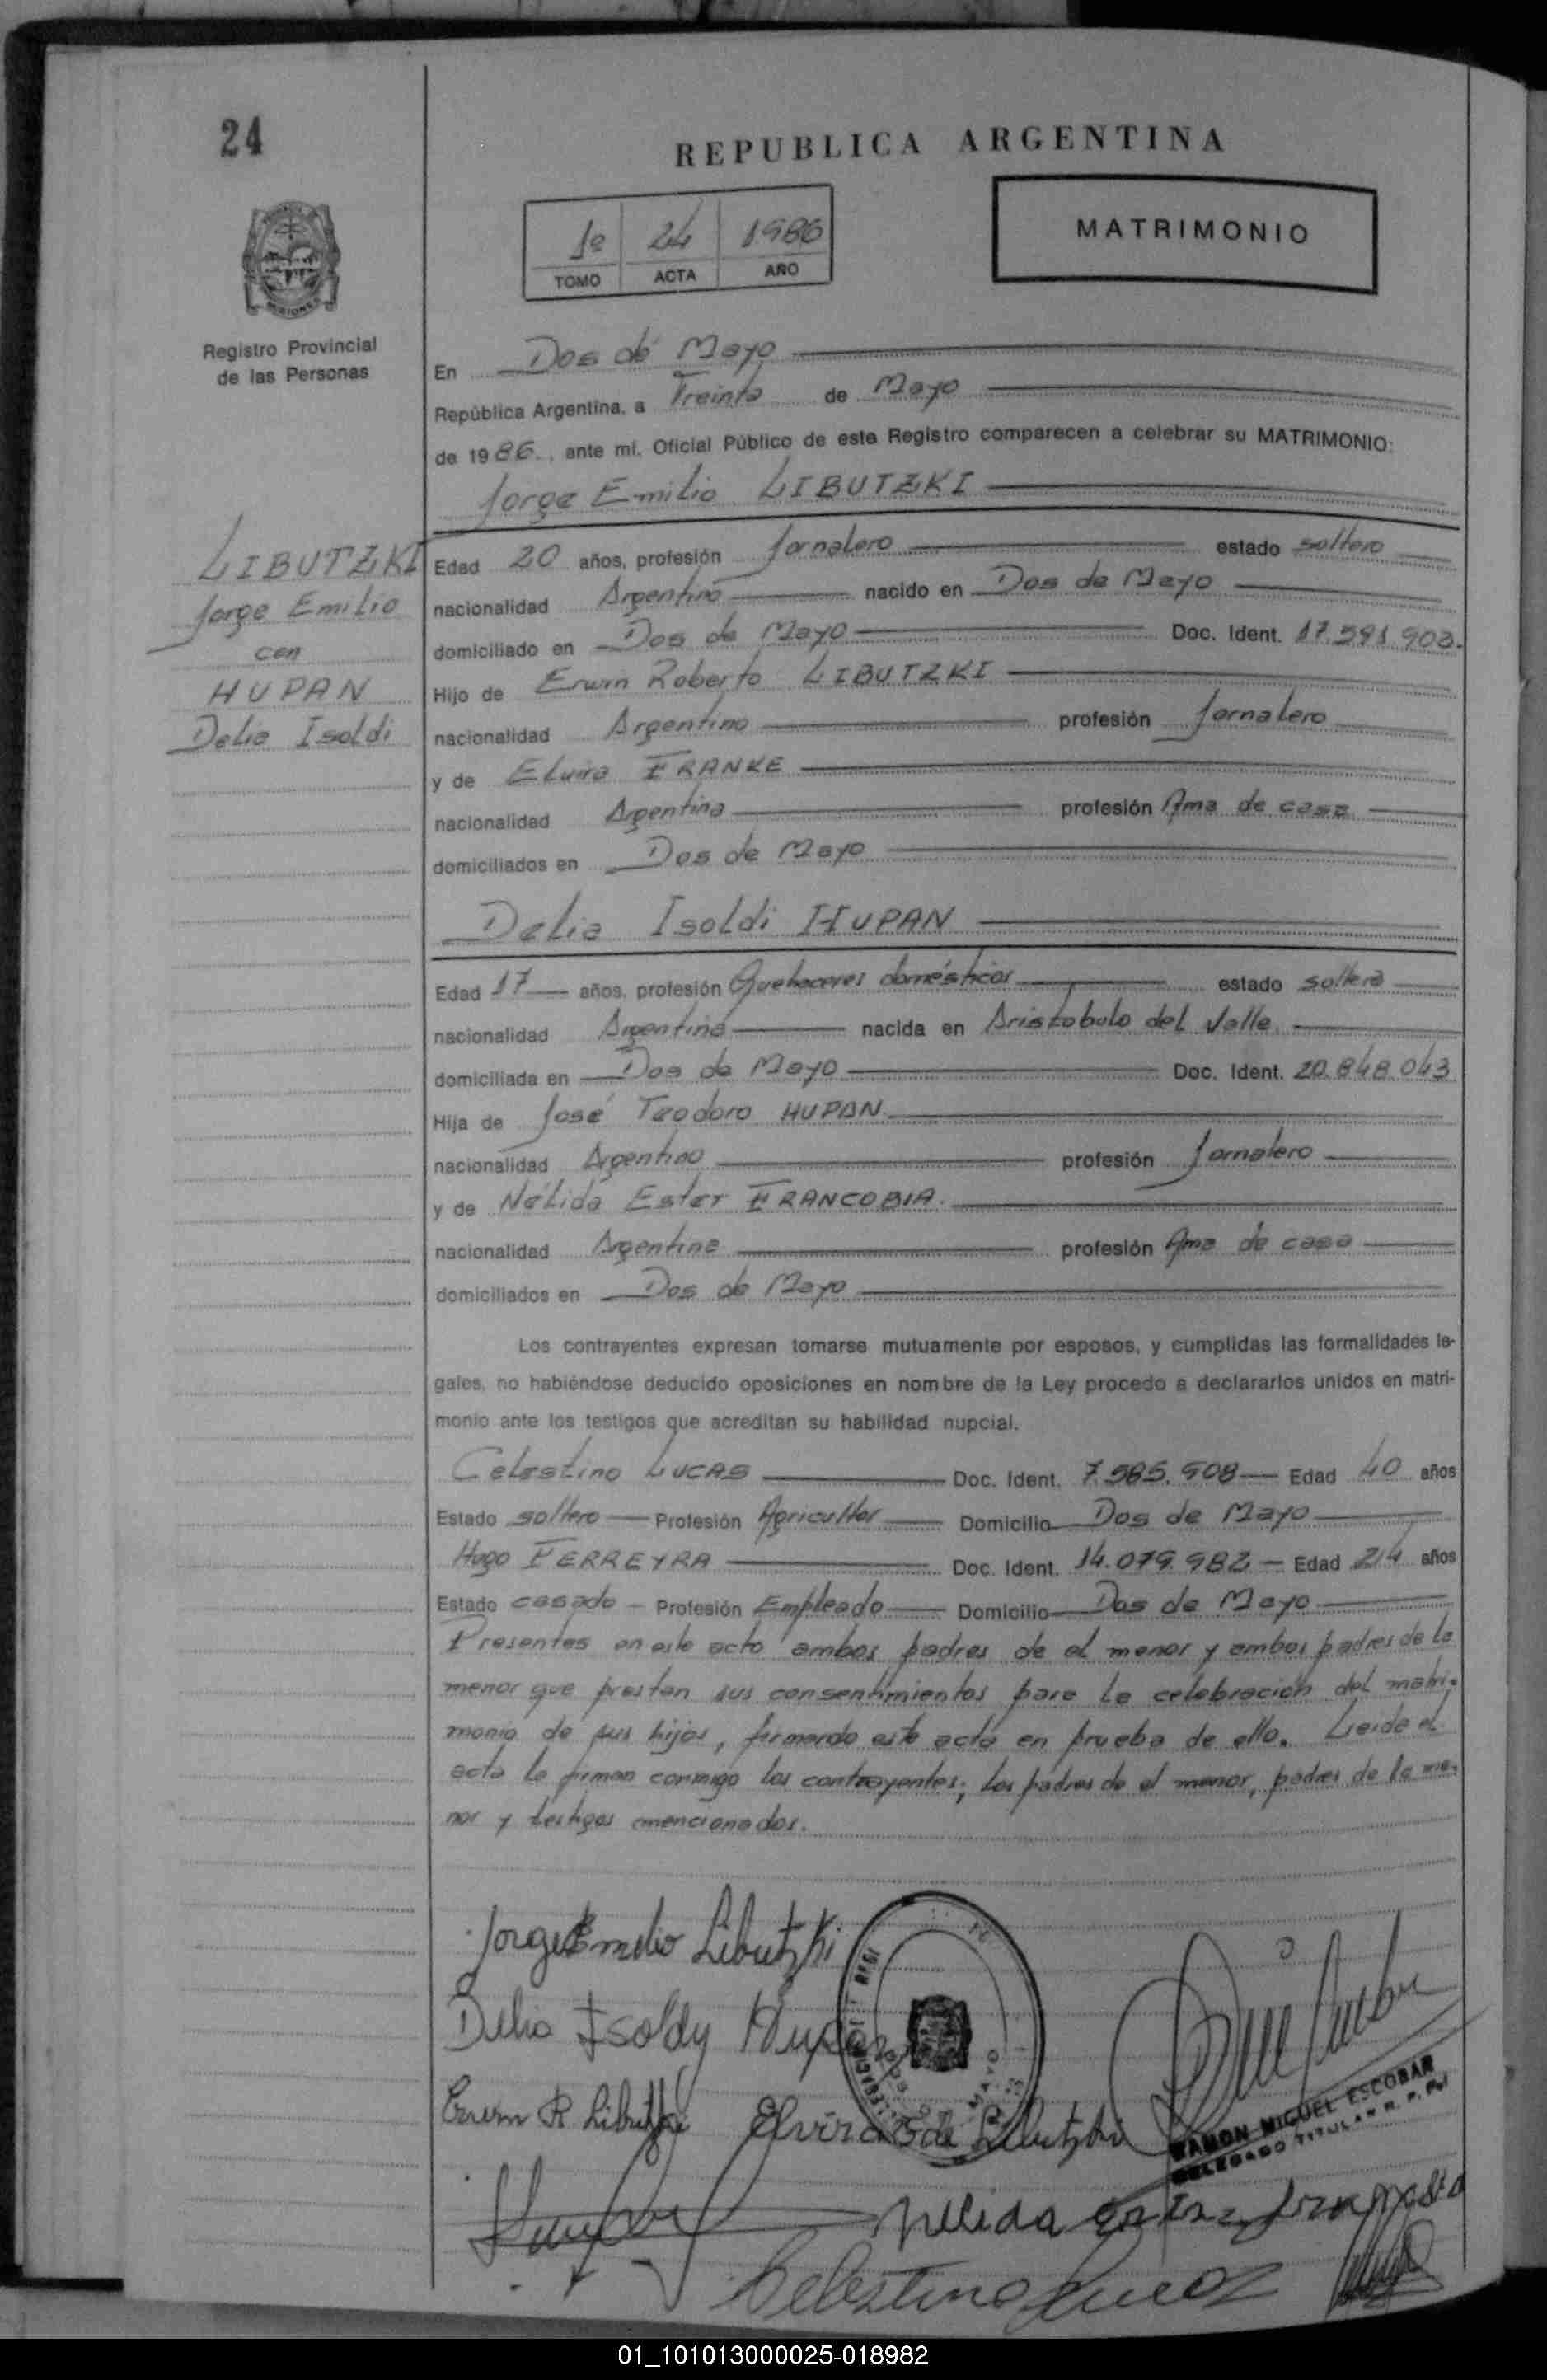 24
REPUBLICA ARGENTINA
1º 24 1986
TOMO ACTA AÑO
MATRIMONIO
Registro Provincial
de las Personas
En Dos de Mayo
República Argentina, a Treinta de Mayo
de 1986, ante mi, Oficial Público de este Registro comparecen a celebrar su MATRIMONIO:
Jorge Emilio LIBUTZKI
LIBUTZKI
Jorge Emilio
con
HUPAN
Delia Isoldi
Edad 20 años, profesión Jornalero estado soltero
nacionalidad Argentino nacido en Dos de Mayo
domiciliado en Dos de Mayo Doc. Ident. 17.591.903.
Hijo de Erwin Roberto LIBUTZKI
nacionalidad Argentino profesión Jornalero
y de Elvira FRANKE
nacionalidad Argentina profesión Ama de casa
domiciliados en Dos de Mayo
Delia Isoldi HUPAN
Edad 17 años, profesión Quehaceres domésticos estado soltera
nacionalidad Argentina nacida en Aristobulo del Valle
domiciliada en Dos de Mayo Doc. Ident. 20.848.043
Hija de José Teodoro HUPAN
nacionalidad Argentino profesión Jornalero
y de Nélida Ester FRANCOBIA.
nacionalidad Argentina profesión Ama de casa
domiciliados en Dos de Mayo
Los contrayentes expresan tomarse mutuamente por esposos, y cumplidas las formalidades le-
gales, no habiéndose deducido oposiciones en nombre de la Ley procedo a declararlos unidos en matri-
monio ante los testigos que acreditan su habilidad nupcial.
Celestino LUCAS Doc. Ident. 7.585.908 Edad 40 años
Estado soltero Profesión Agricultor Domicilio Dos de Mayo
Hugo FERREYRA Doc. Ident. 14.079.982 Edad 24 años
Estado casado Profesión Empleado Domicilio Dos de Mayo
Presentes en este acto ambos padres de el menor y ambos padres de la
menor que prestan sus consentimientos para la celebración del matri-
monio de sus hijos, firmando este acta en prueba de ello. Leida el
acta la firman conmigo los contrayentes; los padres de el menor, padres de la me-
nor y testigos mencionados.
Jorge Emilio Libutzki
Delia Isoldy Hupan
Erwin R Libutzki Elvira F de Libutzki
RAMON MIGUEL ESCOBAR
DELEGADO TITULAR R. P. P.
Nelida Ester Francobia
Celestino Lucas
01_101013000025-018982